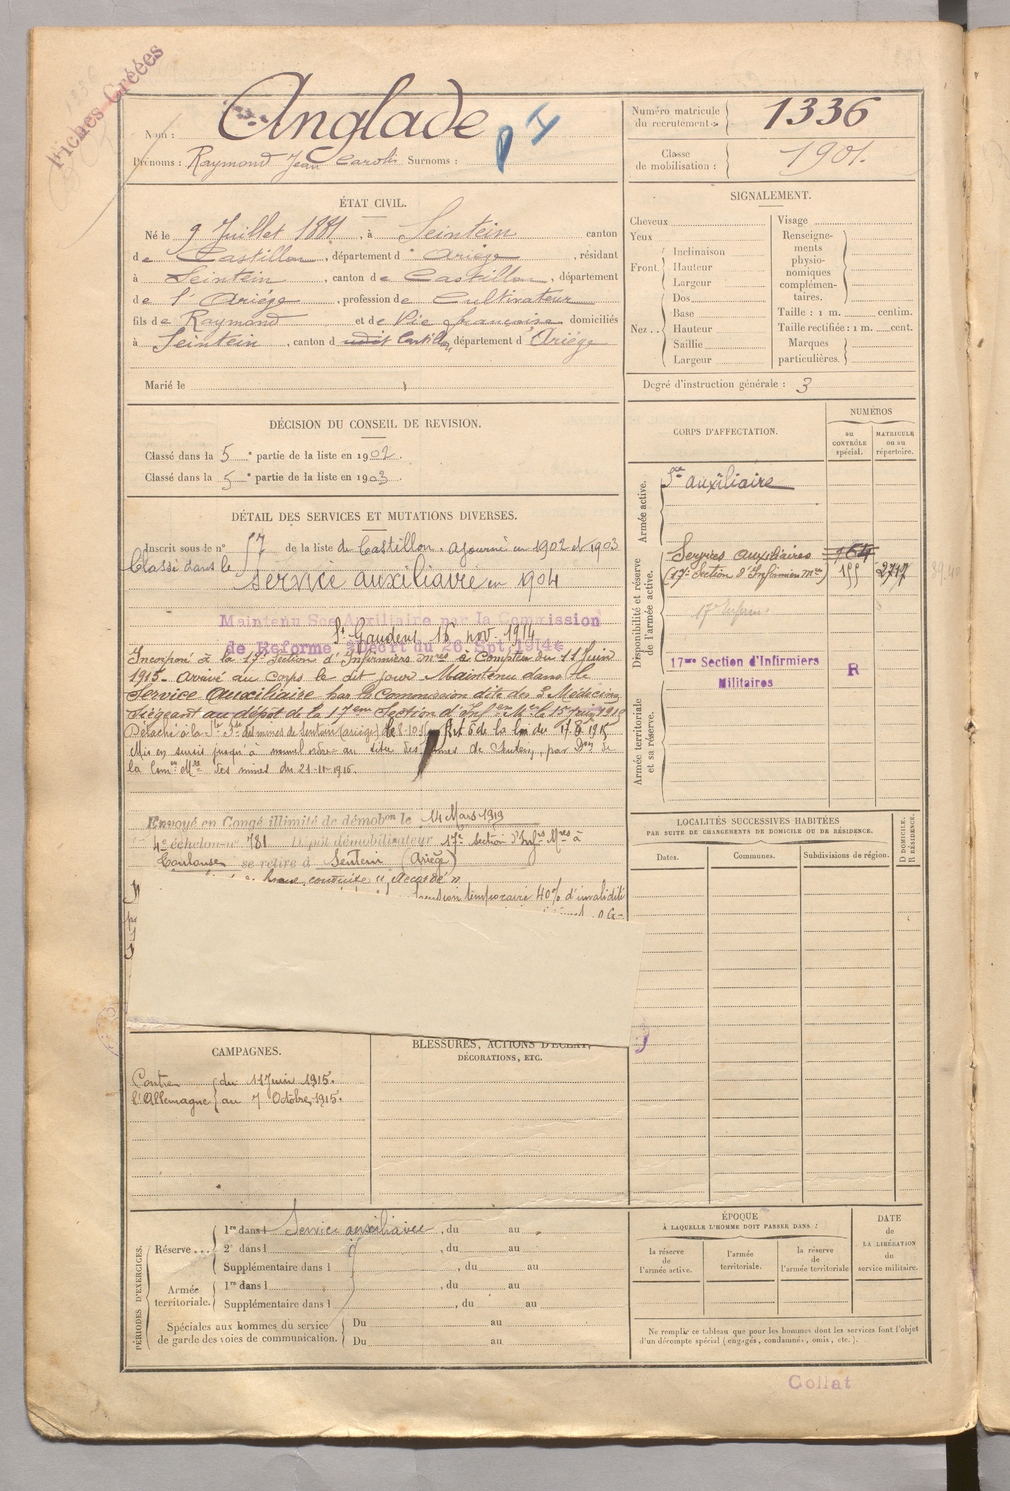 Fiches Créées
Nom : Anglade
PH
Prénoms : Raymond Jean Surnoms :
Numéro matricule
du recrutement : 1336
Classe
de mobilisation : 1901.
ÉTAT CIVIL.
Né le 9 Juillet 1881, à Seintein canton
de Castillon, département d' Ariège, résidant
à Seintein, canton de Castillon, département
de l'Ariége, profession de Cultivateur
fils de Raymond et de Vié françoise domiciliés
à Seintein, canton d Castillon, département d'Ariége
Marié le
SIGNALEMENT.
Cheveux
Yeux
Front. Inclinaison
Hauteur
Largeur
Nez .. Dos
Base
Hauteur
Saillie
Largeur
Visage
Renseigne-
ments
physio-
nomiques
complémen-
taires.
Taille : 1 m. centim.
Taille rectifiée : 1 m. cent.
Marques
particulières.
Degré d'instruction générale : 3
DÉCISION DU CONSEIL DE REVISION.
Classé dans la 5e partie de la liste en 1902.
Classé dans la 5e partie de la liste en 1903.
DÉTAIL DES SERVICES ET MUTATIONS DIVERSES.
Inscrit sous le n° 57 de la liste de Castillon. ajourné en 1902 et 1903
Classé dans le service auxiliaire en 1904
Maintenu Sce Auxiliaire par la Commission
St Gaudens 16 nov. 1914
de Réforme Décret du 26 Spt. 1914
Incorporé à la 17e Section d'Infirmiers mres à Compter du 11 Juin
1915. Arrivé au Corps le dit jour Maintenu dans le
Service Auxiliaire par la Commission dite des 3 Médecins
Siégeant au dépôt de la 17em Section d'Infers Mres le 15 juin 1915
Détaché à la Sté des mines de Sentein (ariège) le 8-10-15 Art 6 de la loi du 17.8.1915
Mis en sursis jusqu'à nouvel ordre au titre des mines de, par Don de
la Comon Mre des mines du 21-11-1916.
Envoyé en Congé illimité de démobon le 14 Mars 1919
4e échelon n° 781 Dépôt démobilisateur 17e Section d'Infrs Mres à
Toulouse se retire à Sentein (Ariège)
bonne conduite "Accordé"
pension temporaire 40% d'invalidité
CORPS D'AFFECTATION.
NUMÉROS
au
CONTRÔLE
spécial.
MATRICULE
ou au
répertoire.
Armée active.
Sce auxiliaire
Disponibilité et réserve
de l'armée active.
Services auxiliaires 164
(17e Section d'Infirmiers Mres) 155 2717
17me Section d'Infirmiers
Militaires
R
Armée territoriale
et sa réserve.
LOCALITÉS SUCCESSIVES HABITÉES
PAR SUITE DE CHANGEMENTS DE DOMICILE OU DE RÉSIDENCE.
Dates.
Communes.
Subdivisions de région.
D DOMICILE.
R RÉSIDENCE.
CAMPAGNES.
Contre du 11 Juin 1915.
l'Allemagne au 7 Octobre 1915.
BLESSURES, ACTIONS D'ÉCLAT,
DÉCORATIONS, ETC.
PÉRIODES D'EXERCICES.
Réserve ... 1re dans l Service auxiliaire, du au
2e dans l, du au
Supplémentaire dans l, du au
Armée
territoriale. 1re dans l, du au
Supplémentaire dans l, du au
Spéciales aux hommes du service
de garde des voies de communication. Du au
Du au
ÉPOQUE
À LAQUELLE L'HOMME DOIT PASSER DANS :
la réserve
de l'armée active.
l'armée
territoriale.
la réserve
de l'armée territoriale
DATE
de
LA LIBÉRATION
du
service militaire.
Ne remplir ce tableau que pour les hommes dont les services font l'objet
d'un décompte spécial (engagés, condamnés, omis, etc.).
Collat